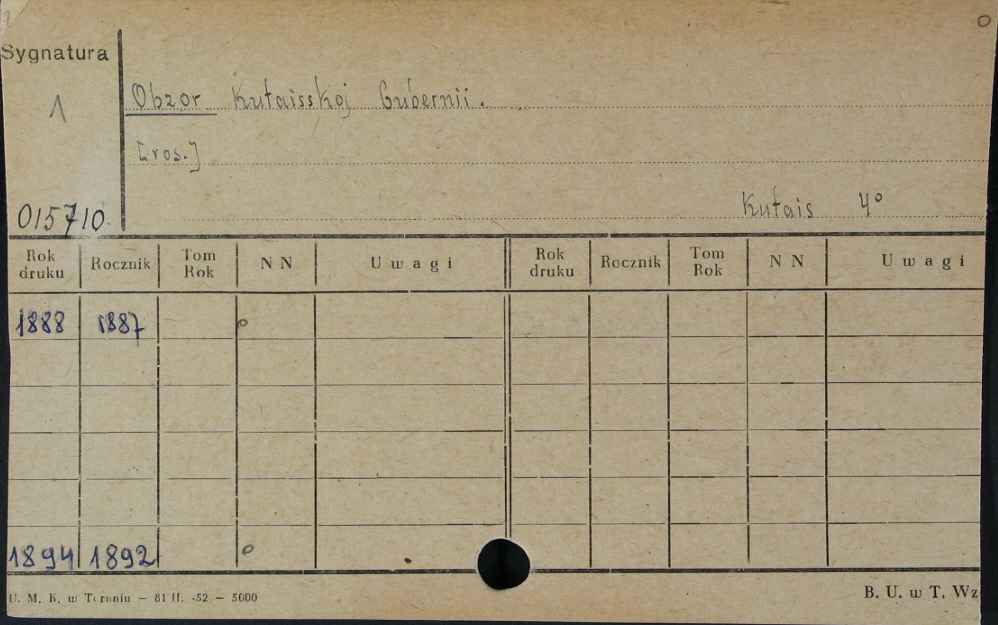 Sygnatura
1
Obzor Kutaisskoj Gubernii.
[ros.]
Kutais 4°
015710
Rok druku Rocznik Tom Rok N N Uwagi Rok druku Rocznik Tom Rok N N Uwagi
1888 1887 o
1894 1892 o
U. M. K. w Toruniu – 81 II. -52 – 5000
B. U. w T. Wz